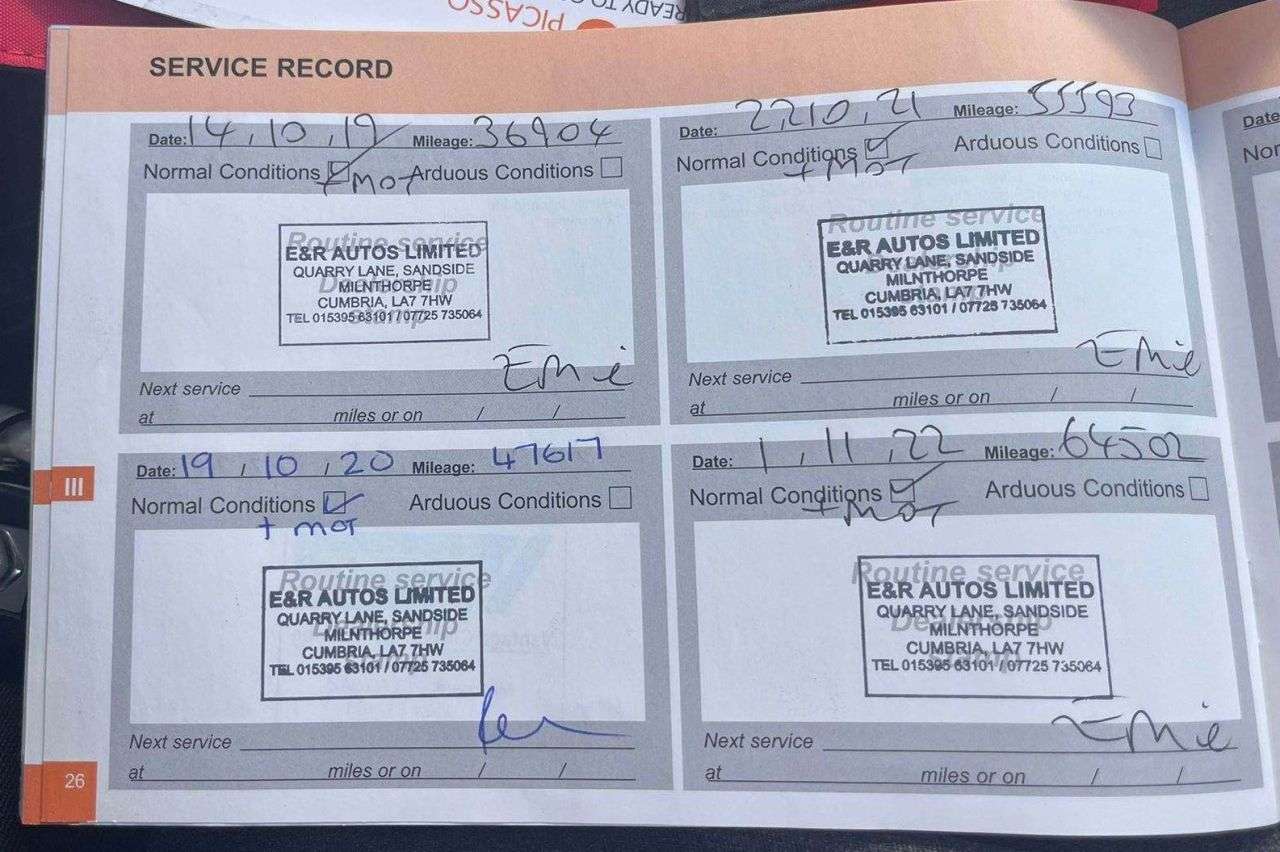 READY TO
PICASSO
SERVICE RECORD
Date: 14, 10, 19 Mileage: 36904
Normal Conditions Arduous Conditions
+ MOT
Routine service
Dealership
Stamp
E&R AUTOS LIMITED
QUARRY LANE, SANDSIDE
MILNTHORPE
CUMBRIA, LA7 7HW
TEL 015395 63101 / 07725 735064
Ernie
Next service
at miles or on / /
Date: 19, 10, 20 Mileage: 47617
Normal Conditions Arduous Conditions
+ MOT
Routine service
Dealership
Stamp
E&R AUTOS LIMITED
QUARRY LANE, SANDSIDE
MILNTHORPE
CUMBRIA, LA7 7HW
TEL 015395 63101 / 07725 735064
Next service
at miles or on / /
Date: 22, 10, 21 Mileage: 55593
Normal Conditions Arduous Conditions
+ MOT
Routine service
Dealership
Stamp
E&R AUTOS LIMITED
QUARRY LANE, SANDSIDE
MILNTHORPE
CUMBRIA, LA7 7HW
TEL 015395 63101 / 07725 735064
Ernie
Next service
at miles or on / /
Date: 1, 11, 22 Mileage: 64502
Normal Conditions Arduous Conditions
+ MOT
Routine service
Dealership
Stamp
E&R AUTOS LIMITED
QUARRY LANE, SANDSIDE
MILNTHORPE
CUMBRIA, LA7 7HW
TEL 015395 63101 / 07725 735064
Ernie
Next service
at miles or on / /
III
26
Date